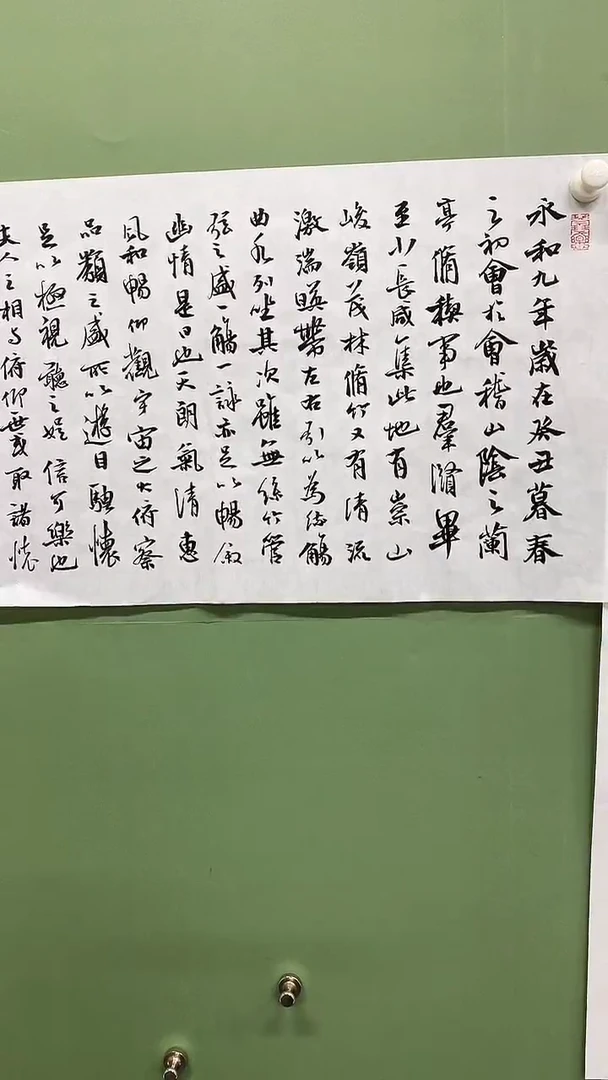 永和九年歲在癸丑暮春
之初會於會稽山陰之蘭
亭脩稧事也羣賢畢
至少長咸集此地有崇山
峻嶺茂林脩竹又有清流
激湍暎帶左右引以為流觴
曲水列坐其次雖無絲竹管
弦之盛一觴一詠亦足以暢敘
幽情是日也天朗氣清惠
風和暢仰觀宇宙之大俯察
品類之盛所以遊目騁懷
足以極視聽之娛信可樂也
夫人之相與俯仰一世或取諸懷